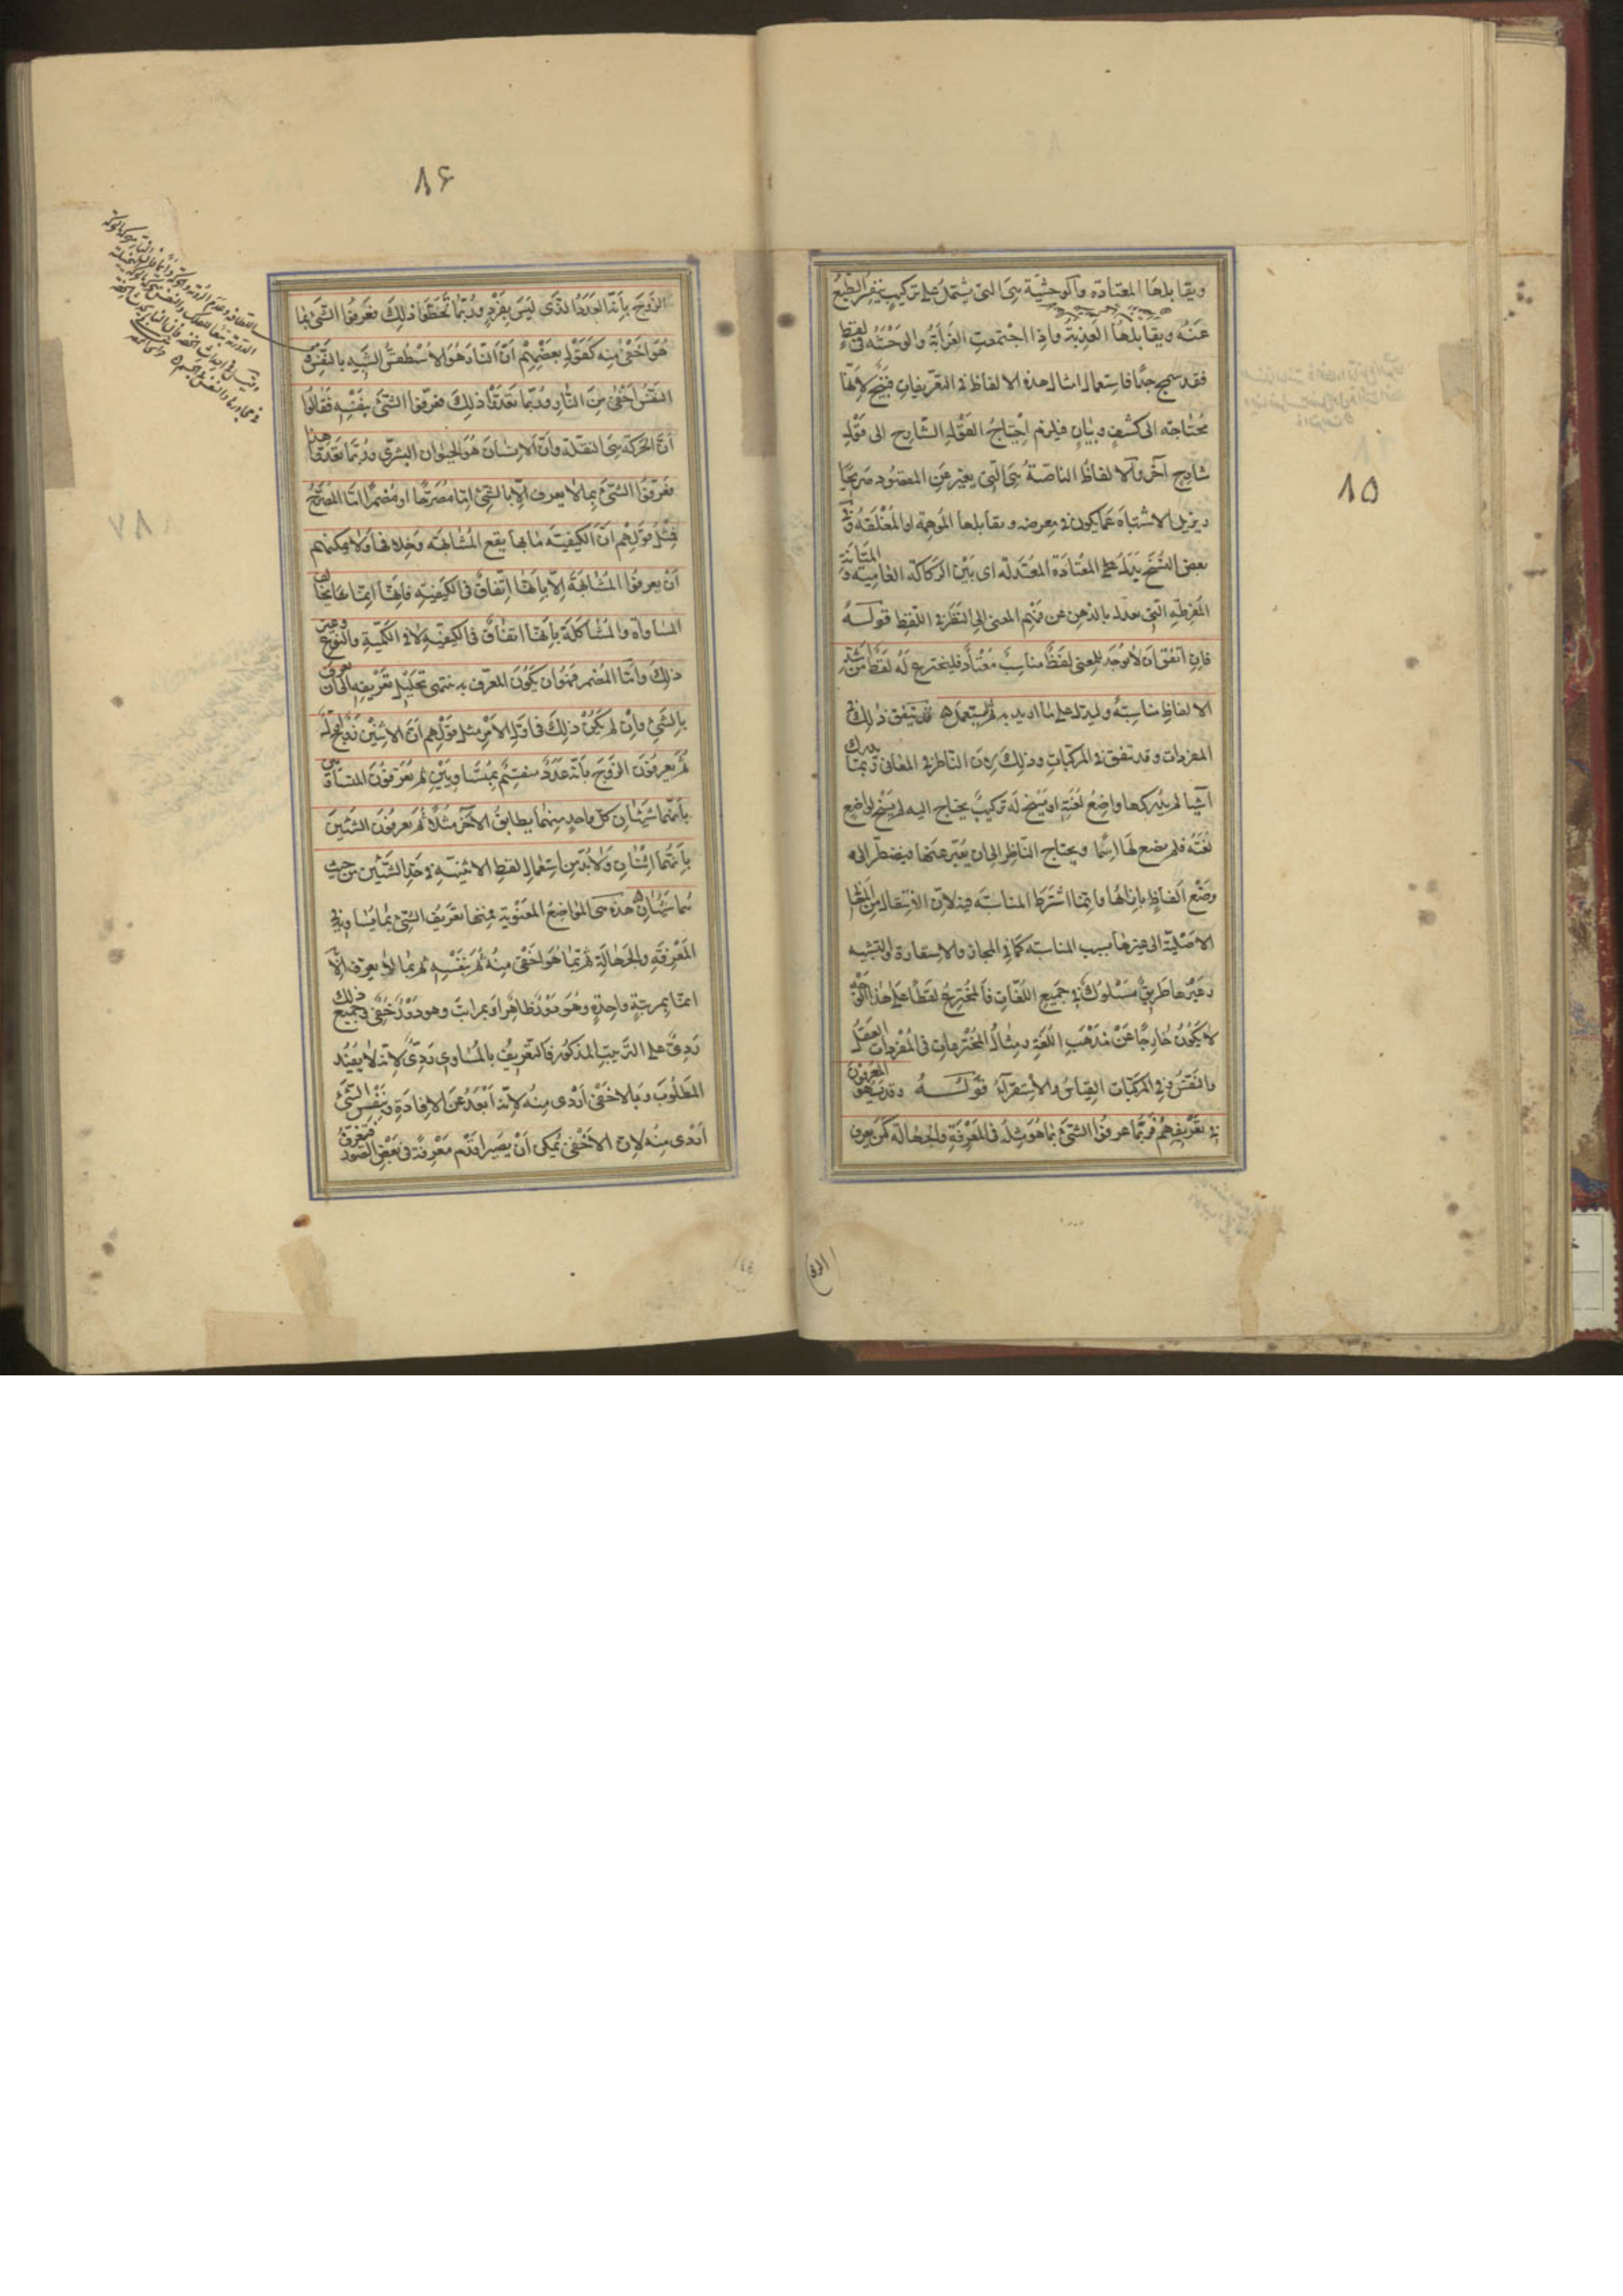 ٨٥
ويقابلها المعتادة والوحشية هي التي تشتمل على تركيب ينفر الطبع
عنه ويقابلها العذبة واذا اجتمعت الغرابة والوحشة في لفظ
فقد سمج جدّا فاستعمال امثال هذه الالفاظ في التعريفات قبيح لانّها
محتاجة الى كشف وبيان فيلزم احتياج القول الشارح الى قول
شارح آخر والالفاظ الناصّة هي التي يعبّر عن المقصود صريحًا
ويزيل الاشتباه عمّا يكون في معرضه ويقابلها الموهمة او المغلقة وفي
بعض النسخ بدل على المعتادة المعتدلة اى بين الركاكة العامية والمتانة
المفرطة التي يعدل بالذهن عن فهم المعنى الى النظر في اللفظ قوله
فان اتّفق ان لا يوجد للمعنى لفظ مناسب معتاد فليخترع له لفظ من اشدّ
الالفاظ مناسبة وليدل على ما اريد به ثم يستعمل فيه قد يتفق ذلك في
المفردات وقد يتفق في المركبات وذلك لان الناظر في المعانى ربما يدرك
اشيا لم يدركها واضع لغته او يسنح له تركيب يحتاج اليه لم يسنح لواضع
لغته فلم يضع لها اسمًا ويحتاج الناظر الى ان يعبّر عنها فيضطر الى
وضع الفاظ بازائها وانّما اشترط المناسبة فيه لان الانتقال من المعانى
الاصلية الى غيرها بسبب المناسبة كما في المجاز والاستعارة والتشبيه
وغيرها طريق مسلوك في جميع اللغات فالمخترع لفظًا على هذا الوجه
لا يكون خارجًا عن مذهب اللغة ومثال المخترعات في المفردات العقل
والنفس وفي المركبات القياس والاستقراء قوله وقد يسهو المعرفون
في تعريفهم فربّما عرفوا الشئ بما هو مثله في المعرفة والجهالة كمن يعرف
٨۶
الزوج بانّه العدد الذى ليس بفرد وربّما تخطوا ذلك فعرفوا الشئ بما
هو اخفى منه كقول بعضهم انّ النار هو الاسطقس الشبيه بالنفس و
النفس اخفى من النار وربّما تعدّوا ذلك فعرّفوا الشئ بنفسه فقالوا
انّ الحركة هي النقلة وانّ الانسان هو الحيوان البشرى وربّما تعدّوا هذا
فعرّفوا الشئ بما لا يعرف الّا بالشئ امّا مصرّحًا او مضمرًا امّا المصرّح
فمثل قولهم انّ الكيفية ما بها يقع المشابهة وخلافها ولا يمكنهم
ان يعرفوا المشابهة الّا بانّها اتّفاق في الكيفية فانها انما يخالف
المساواة والمشاكلة بانها اتفاق في الكيفية لا في الكمية والنوع وغير
ذلك وامّا المضمر فهو ان يكون المعرّف به ينتهى تحليل تعريفه الى ان يعرف
بالشئ وان لم يكن ذلك في اول الامر مثل قولهم انّ الاثنين زوج اول
ثم يعرفون الزوج بانه عدد ينقسم بمتساويين ثم يعرّفون المتساويين
بانهما شيئان كل واحد منهما يطابق الآخر مثلا ثم يعرفون الشيئين
بانهما اثنان ولابدّ من استعمال لفظ الاثنينية في حدّ الشيئين من حيث
هما شيئان هذه هي المواضع المعنوية فمنها تعريف الشئ بما يساويه في
المعرفة والجهالة ثم بما هو اخفى منه ثم بنفسه ثم بما لا يعرف الّا به
امّا بمرتبة واحدة وهو دور ظاهر او بمراتب وهو دور خفى وجميع ذلك
ردىّ على الترتيب المذكور فالتعريف بالمساوى ردىّ لانه لا يفيد
المطلوب وبالاخفى اردى منه لانه ابعد عن الافادة وبنفس الشئ
اردى منه لان الاخفى يمكن ان يصير اقدم معرفة في بعض الصور فيعرف